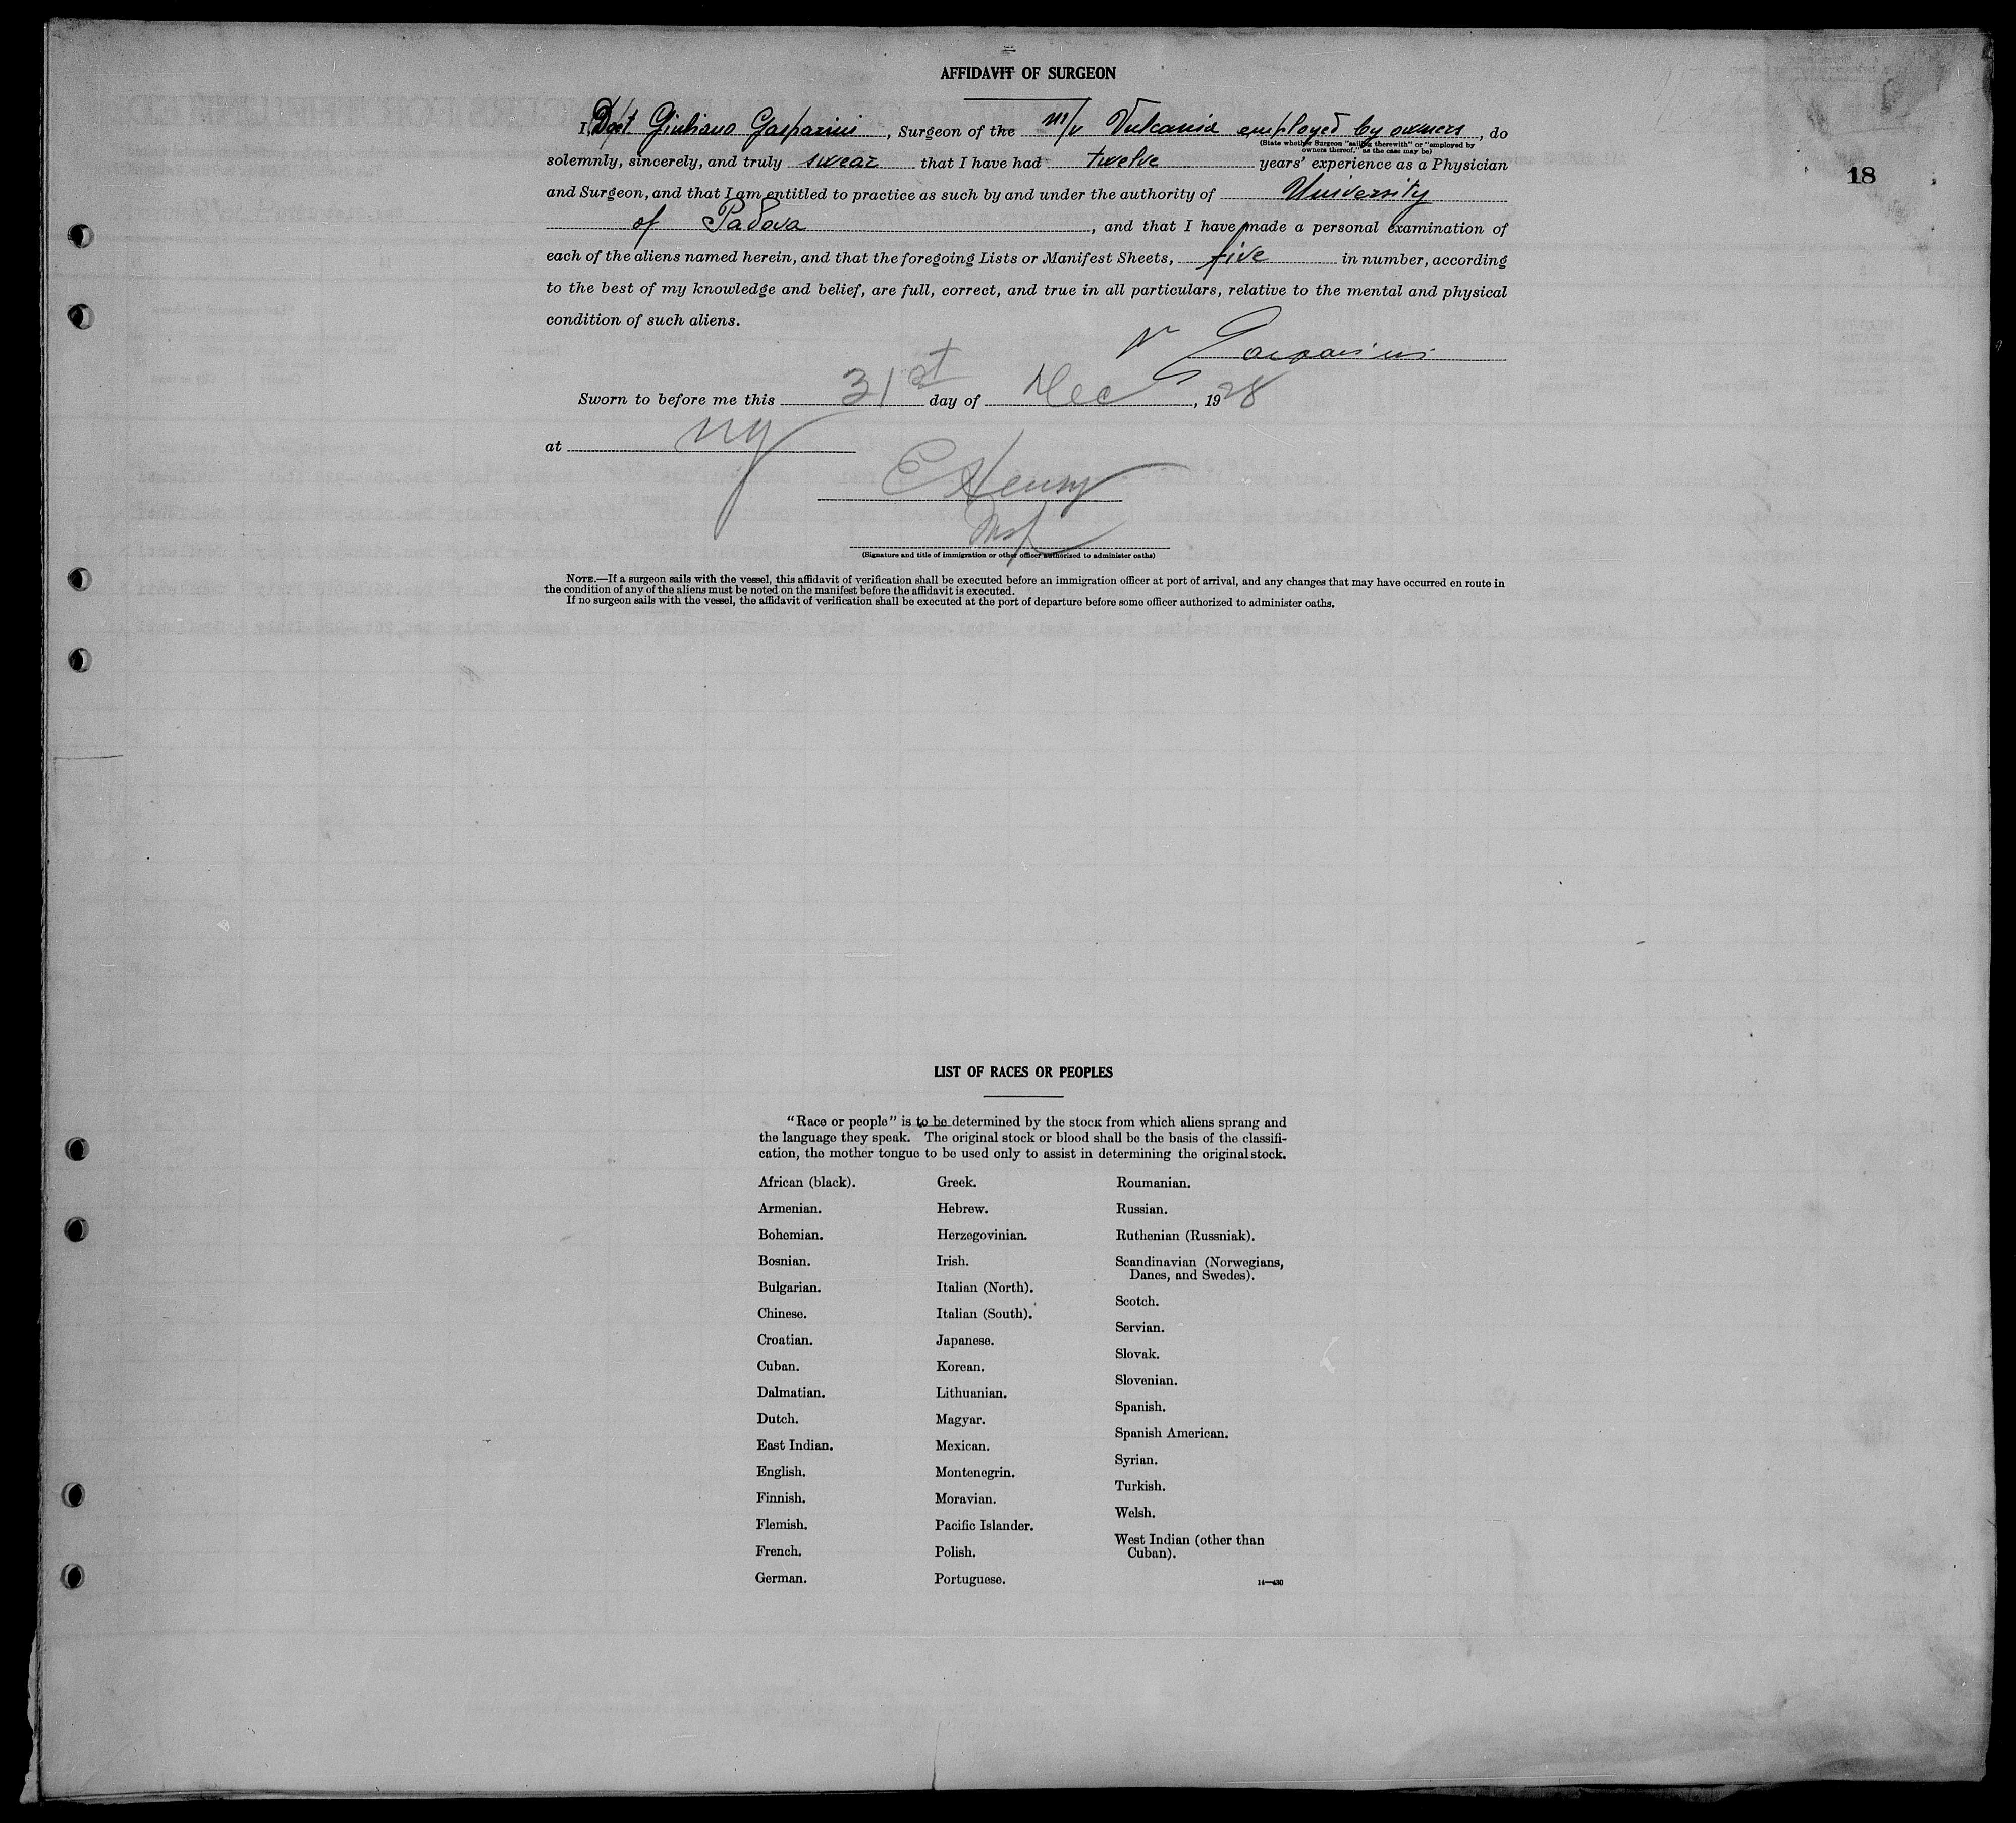 AFFIDAVIT OF SURGEON
18
I, Dott Giuliano Gasparini, Surgeon of the m/v Vulcania employed by owners, do
(State whether Surgeon "sailing therewith" or "employed by
owners thereof," as the case may be)
solemnly, sincerely, and truly swear that I have had twelve years' experience as a Physician
and Surgeon, and that I am entitled to practice as such by and under the authority of University
of Padova, and that I have made a personal examination of
each of the aliens named herein, and that the foregoing Lists or Manifest Sheets, five in number, according
to the best of my knowledge and belief, are full, correct, and true in all particulars, relative to the mental and physical
condition of such aliens.
Gasparini
Sworn to before me this 31st day of Dec, 1928
at NY
E Henry
Insp
(Signature and title of immigration or other officer authorized to administer oaths)
NOTE.—If a surgeon sails with the vessel, this affidavit of verification shall be executed before an immigration officer at port of arrival, and any changes that may have occurred en route in
the condition of any of the aliens must be noted on the manifest before the affidavit is executed.
If no surgeon sails with the vessel, the affidavit of verification shall be executed at the port of departure before some officer authorized to administer oaths.
LIST OF RACES OR PEOPLES
"Race or people" is to be determined by the stock from which aliens sprang and
the language they speak. The original stock or blood shall be the basis of the classifi-
cation, the mother tongue to be used only to assist in determining the original stock.
African (black).
Armenian.
Bohemian.
Bosnian.
Bulgarian.
Chinese.
Croatian.
Cuban.
Dalmatian.
Dutch.
East Indian.
English.
Finnish.
Flemish.
French.
German.
Greek.
Hebrew.
Herzegovinian.
Irish.
Italian (North).
Italian (South).
Japanese.
Korean.
Lithuanian.
Magyar.
Mexican.
Montenegrin.
Moravian.
Pacific Islander.
Polish.
Portuguese.
Roumanian.
Russian.
Ruthenian (Russniak).
Scandinavian (Norwegians,
Danes, and Swedes).
Scotch.
Servian.
Slovak.
Slovenian.
Spanish.
Spanish American.
Syrian.
Turkish.
Welsh.
West Indian (other than
Cuban).
14—430